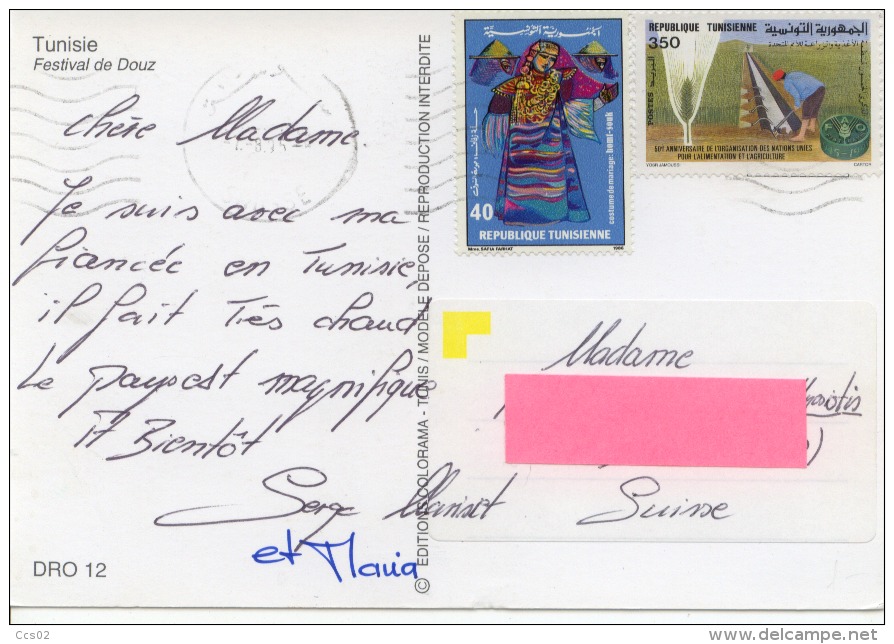 Tunisie
Festival de Douz
Chère Madame
Je suis avec ma
fiancée en Tunisie,
il fait Très chaud
Le pays est magnifique
A Bientôt
Serge
et Maria
DRO 12
© EDITIONS COLORAMA - TUNIS / MODELE DEPOSE / REPRODUCTION INTERDITE
الجمهورية التونسية
costume de mariage: homt-souk
40
REPUBLIQUE TUNISIENNE
Mme. SAFIA FARHAT
1986
REPUBLIQUE TUNISIENNE
الجمهورية التونسية
350
POSTES
50e ANNIVERSAIRE DE L'ORGANISATION DES NATIONS UNIES
POUR L'ALIMENTATION ET L'AGRICULTURE
Madame
Suisse
Ccs02
delcampe.net